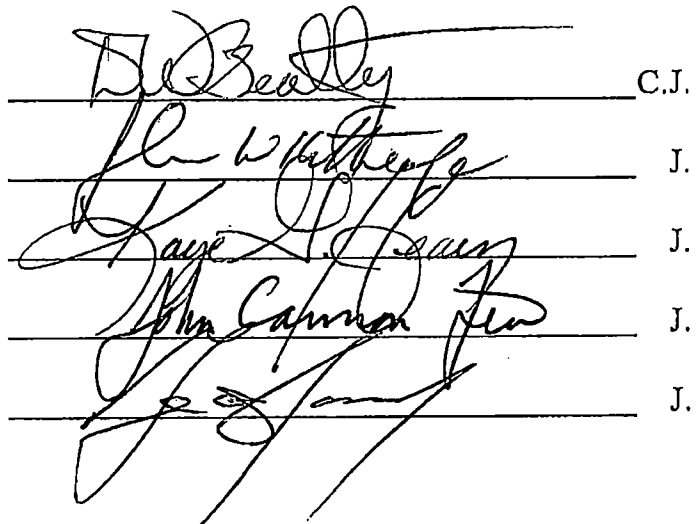 Beatty C.J.
John W Kittredge J.
Kaye G. Hearn J.
John Cannon Few J.
J.